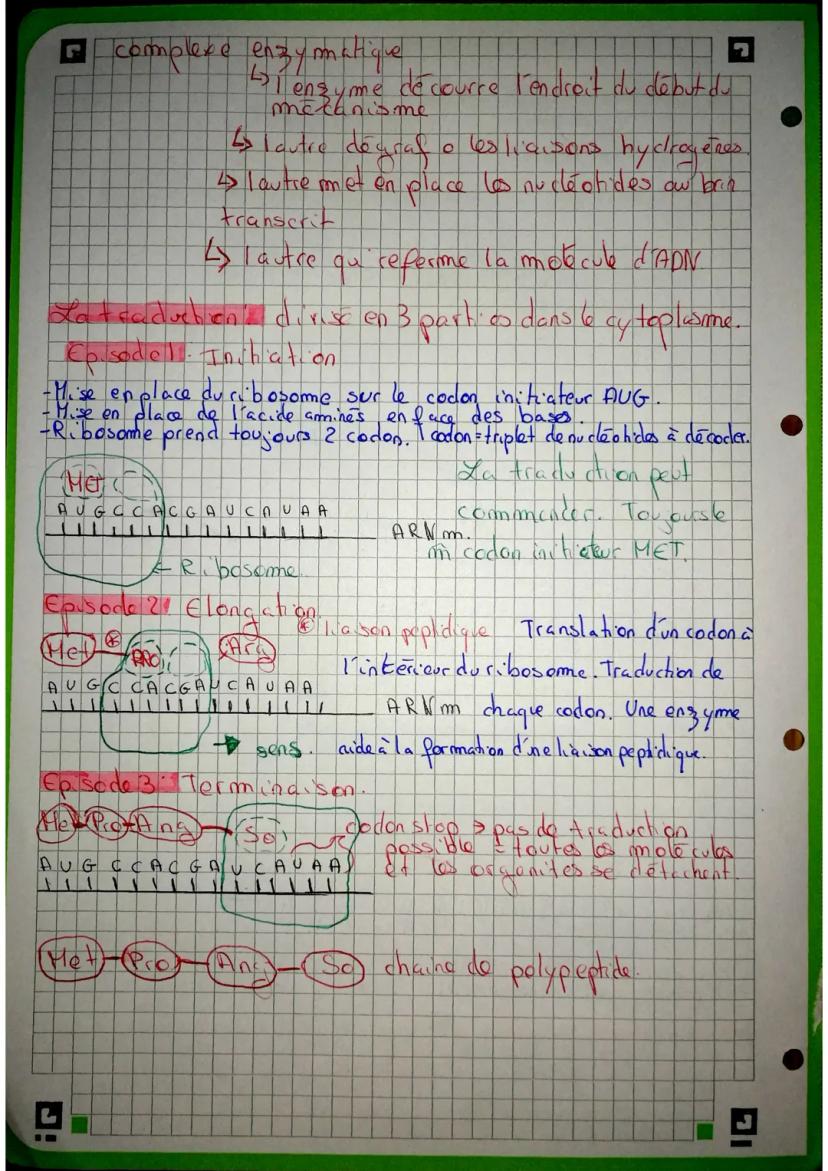 complexe enzymatique
↳ l'enzyme découvre l'endroit du début du
mécanisme
↳ l'autre dégrafe les liaisons hydrogènes.
↳ l'autre met en place les nucléotides au brin
transcrit
↳ l'autre qui referme la molécule d'ADN
La traduction: divisé en 3 parties dans le cytoplasme.
Episode 1: Initiation
- Mise en place du ribosome sur le codon initiateur AUG.
- Mise en place de l'acide aminés en face des bases.
- Ribosome prend toujours 2 codon. 1 codon = triplet de nucléotides à décoder.
Met
A U G C C A C G A U C A U A A
ARNm.
← Ribosome
La traduction peut
commencer. Toujours le
m̂ codon initiateur MET.
Episode 2: Elongation
⊛ liaison peptidique
Met ⊛ PRO Arg
A U G C C A C G A U C A U A A
ARNm
→ sens.
Translation d'un codon à
l'intérieur du ribosome. Traduction de
chaque codon. Une enzyme
aide à la formation d'ne liaison peptidique.
Episode 3: Terminaison.
Met Pro Ang So
A U G C C A C G A U C A U A A
codon stop → pas de traduction
possible = toutes les molécules
et les organites se détachent.
Met - Pro - Ang - So chaine de polypeptide.